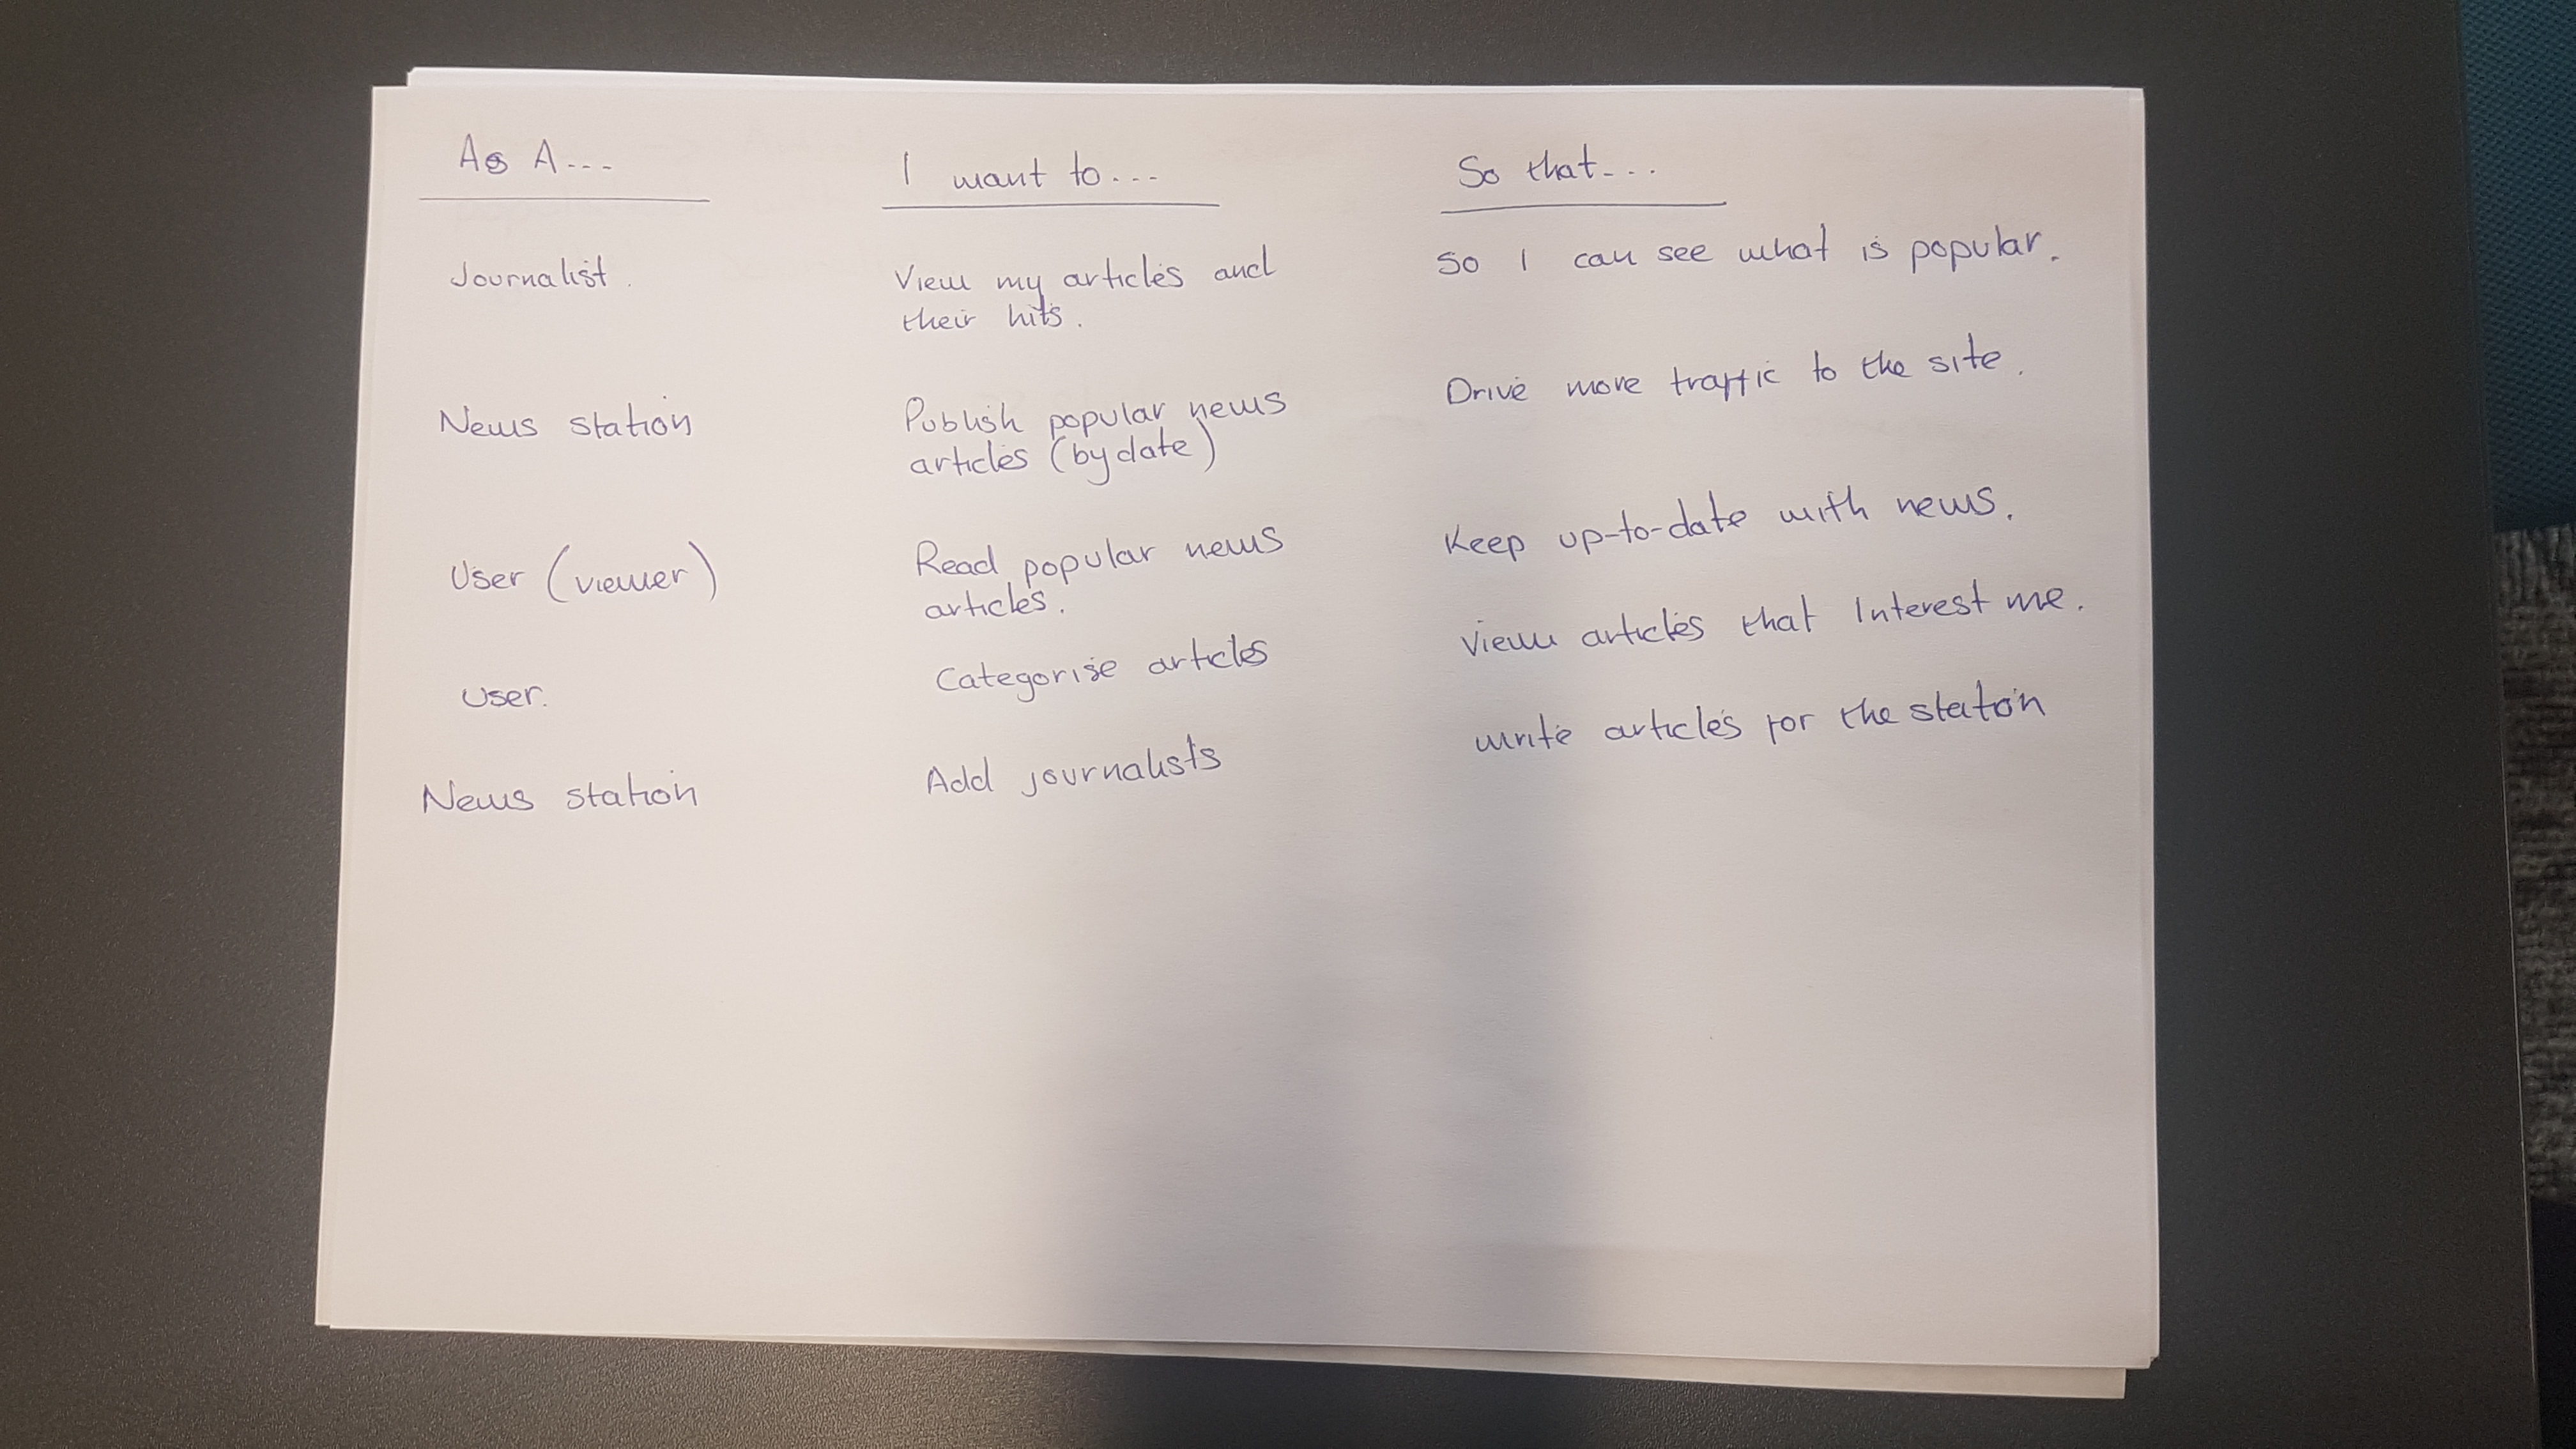 As A...
I want to...
So that...
Journalist.
View my articles and
their hits.
So I can see what is popular.
News station
Publish popular news
articles (by date)
Drive more traffic to the site.
User (viewer)
Read popular news
articles.
Keep up-to-date with news.
User.
Categorise articles
View articles that Interest me.
News station
Add journalists
write articles for the station